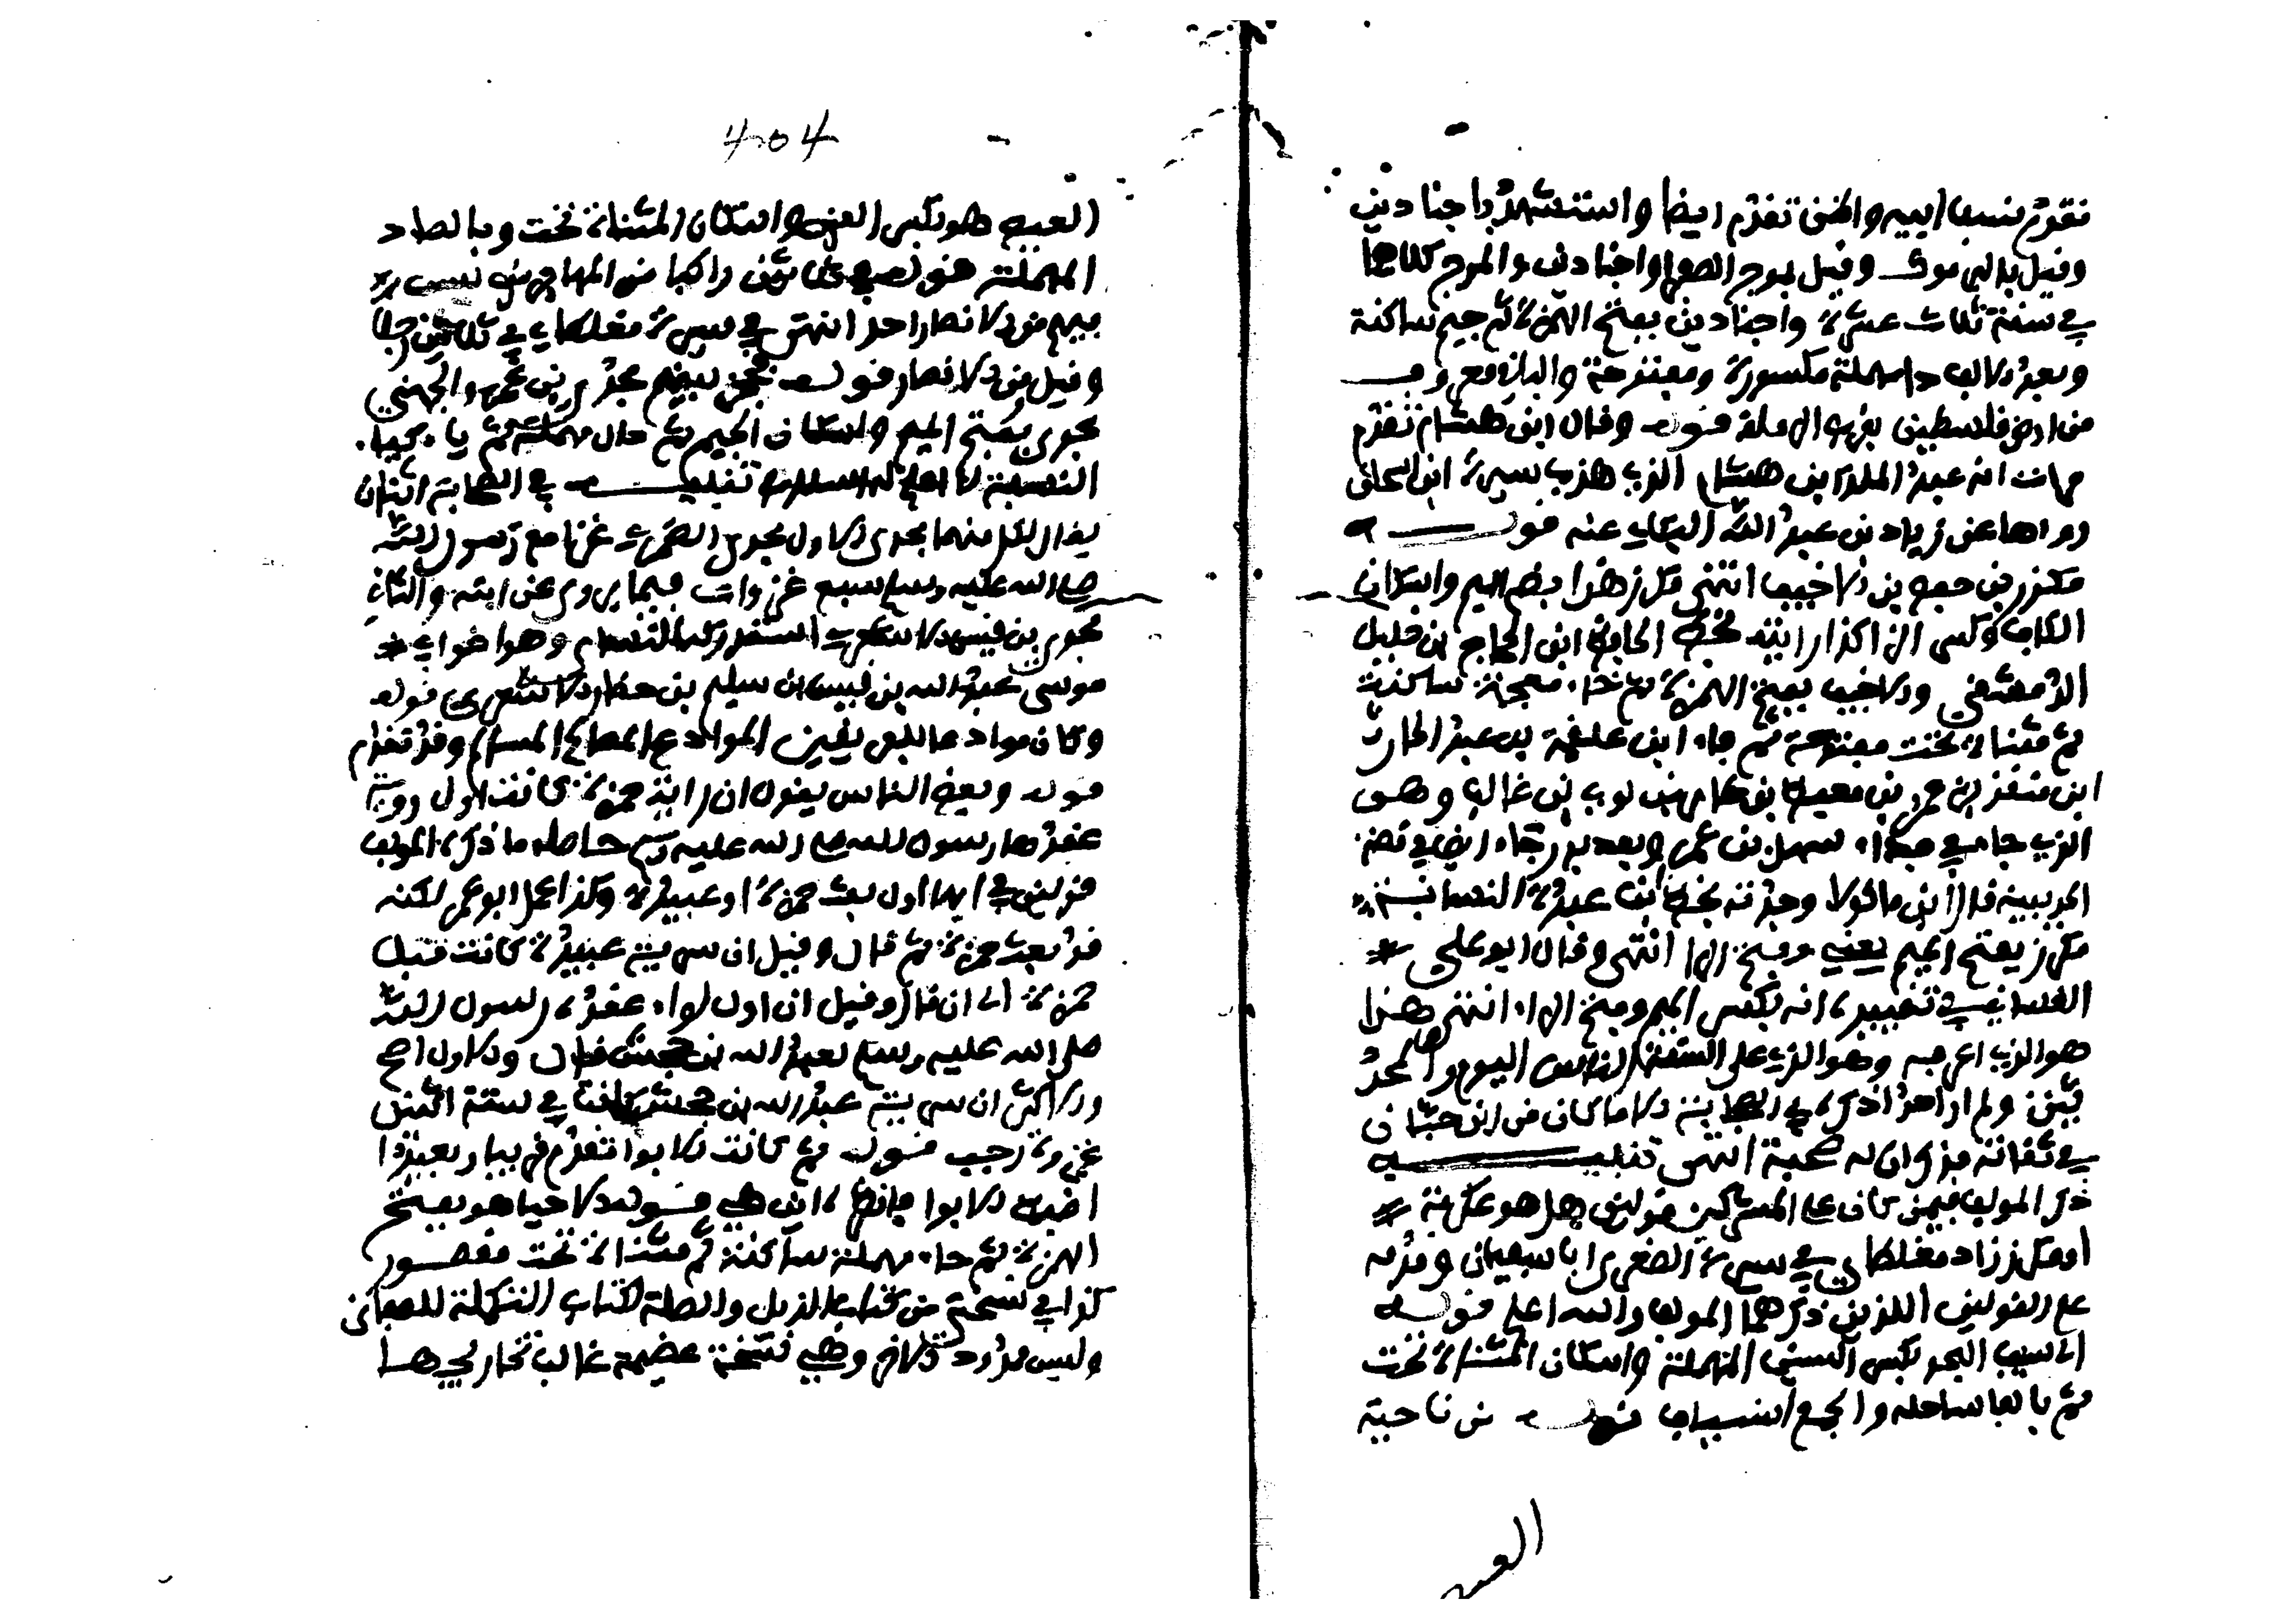 تقدم نسب ابيه والجن تقدم ايضا واستشهد باجنادين
وقيل باليرموك وقيل بمرج الصفر واجنادين والمرج كلاهما
في سنة ثلاث عشرة واجنادين بفتح الهمزة ثم جيم ساكنة
وبعد الالف دال مهملة مكسورة ومفتوحة والباقي معروف
من ارض فلسطين بقرب الرملة قوله وقال ابن هشام تقدم
مرات انه عبد الملك ابن هشام الذي هذب سيرة ابن اسحاق
رواها عن زياد بن عبد الله البكاي عنه قوله
مكرز بن حفص بن الاخيف انتهى مكرز هذا بضم الميم واسكان
الكاف وكسر الرا كذا رايته بخط الحافظ ابن الحاج بن خليل
الدمشقي والاخيف بفتح الهمزة ثم خاء معجمة ساكنة
ثم مثناة تحت مفتوحة ثم فاء ابن علقمة بن عبد الحارث
ابن منقذ بن عمرو بن معيص بن عامر بن لوي بن غالب وهو
الذي جا في فداء سهيل بن عمرو بعد بدر جاء ايضا في قصة
الحديبية قال ابن ماكولا وجدته بخط ابن عبدة النسابة
مكرز بفتح الميم يعني وفتح الرا انتهى وقال ابو علي
الغساني في تقييده انه بكسر الميم وفتح الراء انتهى هذا
هو الذي اعرفه وهو الذي على السنة الناس اليوم واهل الحد
يثين ولم ار احدا ذكره في الصحابة الا ما كان من ابن حبان
في ثقاته فذكر ان له صحبة انتهى تنبيه
ذكر المولف فيمن كان على المشركين قولين هل هو عكرمة
او مكرز زاد مغلطاي في سيرة الصغرى ابا سفيان وقدمه
على القولين اللذين ذكرهما المولف والله اعلم قوله
الى سيف البحر بكسر السين المهملة واسكان المثناة تحت
ثم بالفا ساحله والجمع اسياف قوله من ناحية
العيص
404
العيص هو بكسر العين واسكان المثناة تحت وبالصاد
المهملة قوله في ثلاثين راكبا من المهاجرين ليس
فيهم من الانصار احد انتهى في سيرة مغلطاي في ثلاثين رجلا
وقيل من الانصار قوله فحجز بينهم مجدي بن عمرو الجهني
مجدي بفتح الميم واسكان الجيم ثم دال مهملة ثم ياء كياء
النسبة لا اعلم له اسلاما تنبيه في الصحابة اثنان
يقال لكل منهما مجدي الاول مجدي الضمري غزا مع رسول الله
صلى الله عليه وسلم سبع غزوات فيما يروى عن ابنه والثاني
مجدي بن قيس الاشعري استدركه ابن وهو اخو ابي
موسى عبد الله بن قيس بن سليم بن حضار الاشعري قوله
وكان موادعا للفريقين الموادع المصالح المسالم وقد تقدم
قوله وبعض الناس يقول ان راية حمزة كانت اول راية
عقدها رسول الله صلى الله عليه وسلم حاصل ما ذكره المولف
قولين في ايهما اول بعث حمزة او عبيدة وكذا عمل ابو عمر لكنه
قد بعث حمزة ثم قال وقيل ان سرية عبيدة كانت قبل
حمزة الى ان قال وقيل ان اول لواء عقده رسول الله
صلى الله عليه وسلم لعبد الله بن جحش قال والاول اصح
والاكثر ان سرية عبد الله بن جحش كانت في سنة اثنتين
غرة رجب قوله ثم كانت الابوا تقدم قريبا وبعيدا
الابوا فانظره قوله الاحيا هو بفتح
الهمزة ثم حاء مهملة ساكنة ثم مثناة تحت مقصور
كذا في نسخة من كتاب الذيل والصلة لكتاب التكملة للصغاني
وليس وهي نسخة عظيمة غالب تخاريجها